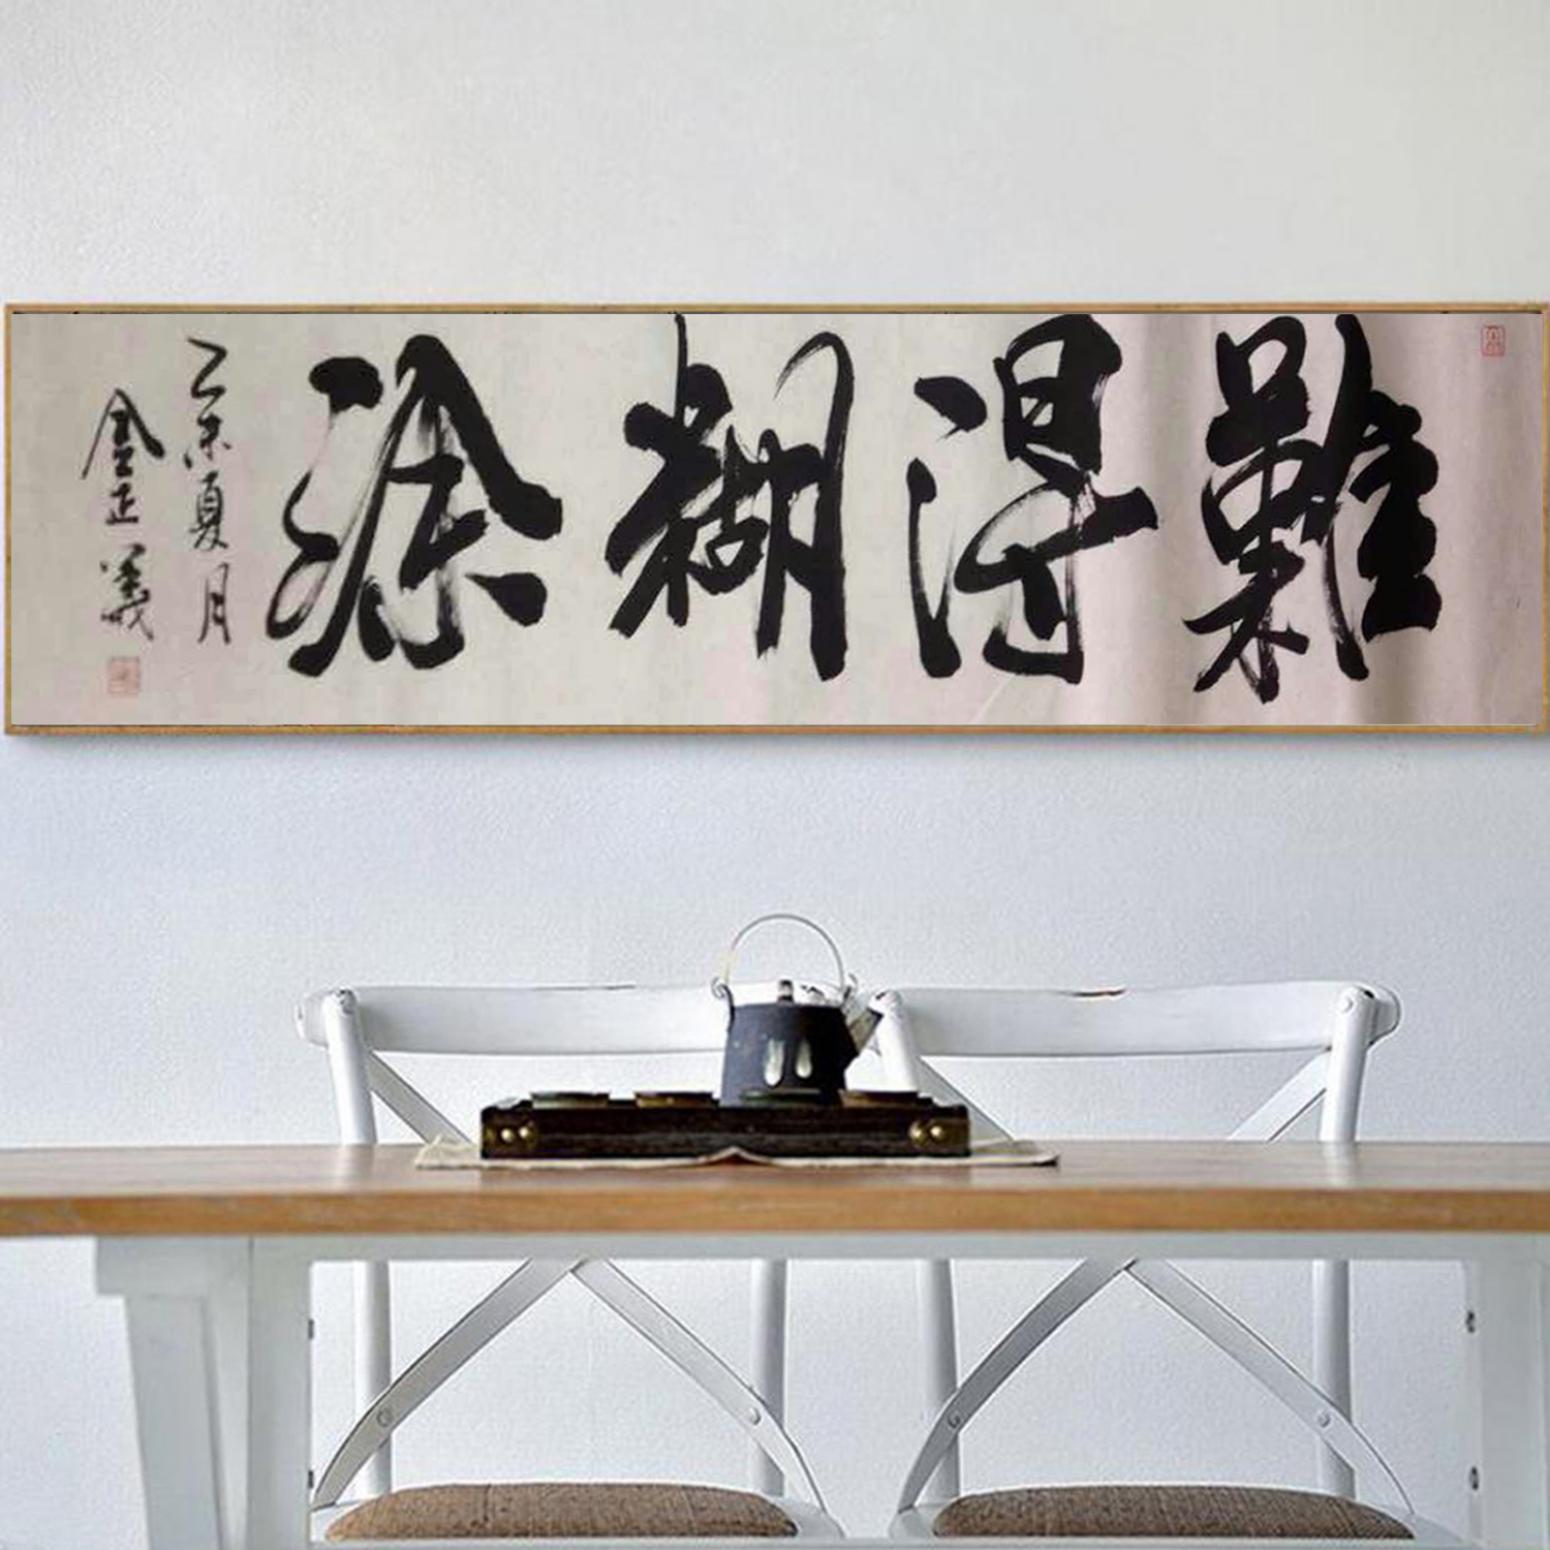 難得糊涂
乙未夏月
金正義